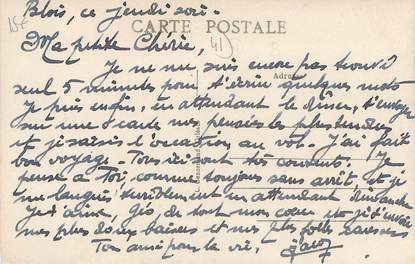 15€
Blois, ce jeudi soir.
CARTE POSTALE
41)
Ma petite Chérie,
Je ne me suis encore pas trouvé
Adre
seul 5 minutes pour t'écrire quelques mots
Je puis enfin, en attendant le dîner, t'envoyer
sur une carte mes pensées les plus tendres
et je saisis l'occasion au vol. J'ai fait
bon voyage. Tous ici sont très contents. Je
pense à Toi, comme toujours sans arrêt, et je
me languis terriblement en attendant dimanche
Je t'aime, de tout mon cœur et je t'envoie
mes plus doux baisers et mes plus folles caresses
Ton ami pour la vie,